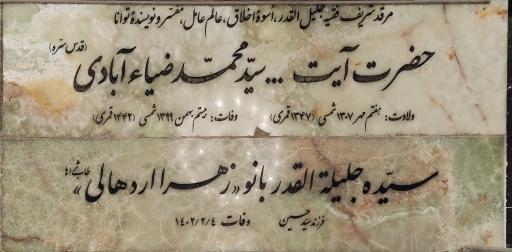 مرقد شریف فقیه جلیل القدر، اسوهٔ اخلاق، عالم عامل، مفسر و نویسندهٔ توانا
حضرت آیت ... سیّد محمّد ضیاء آبادی (قدس سره)
ولادت: هفتم مهر ۱۳۰۷ شمسی (۱۳۴۷ قمری) وفات: بیستم بهمن ۱۳۹۹ شمسی (۱۴۴۲ قمری)
سیّده جلیلة القدر بانو «زهرا اردهالی» طاب ثراها
فرزند سید حسین وفات ۱۴۰۲/۲/۴